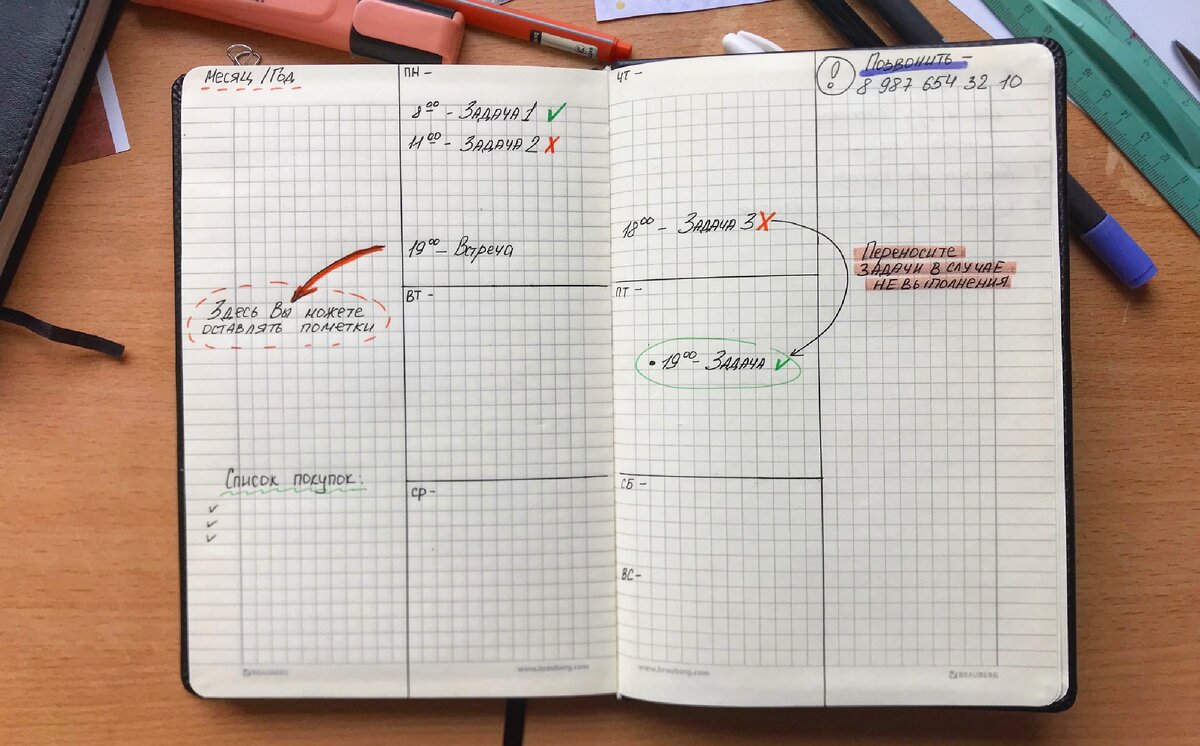 Месяц / Год
ПН -
8⁰⁰ - Задача 1 ✓
11⁰⁰ - Задача 2 X
19⁰⁰ - Встреча
Здесь Вы можете
оставлять пометки
ВТ -
Список покупок:
✓
✓
✓
СР -
BRAUBERG
www.brauberg.com
ЧТ -
18⁰⁰ - Задача 3 X
ПТ -
• 19⁰⁰ - Задача ✓
СБ -
ВС -
www.brauberg.com
! Позвонить -
8 987 654 32 10
Переносите
задачи в случае
не выполнения
BRAUBERG